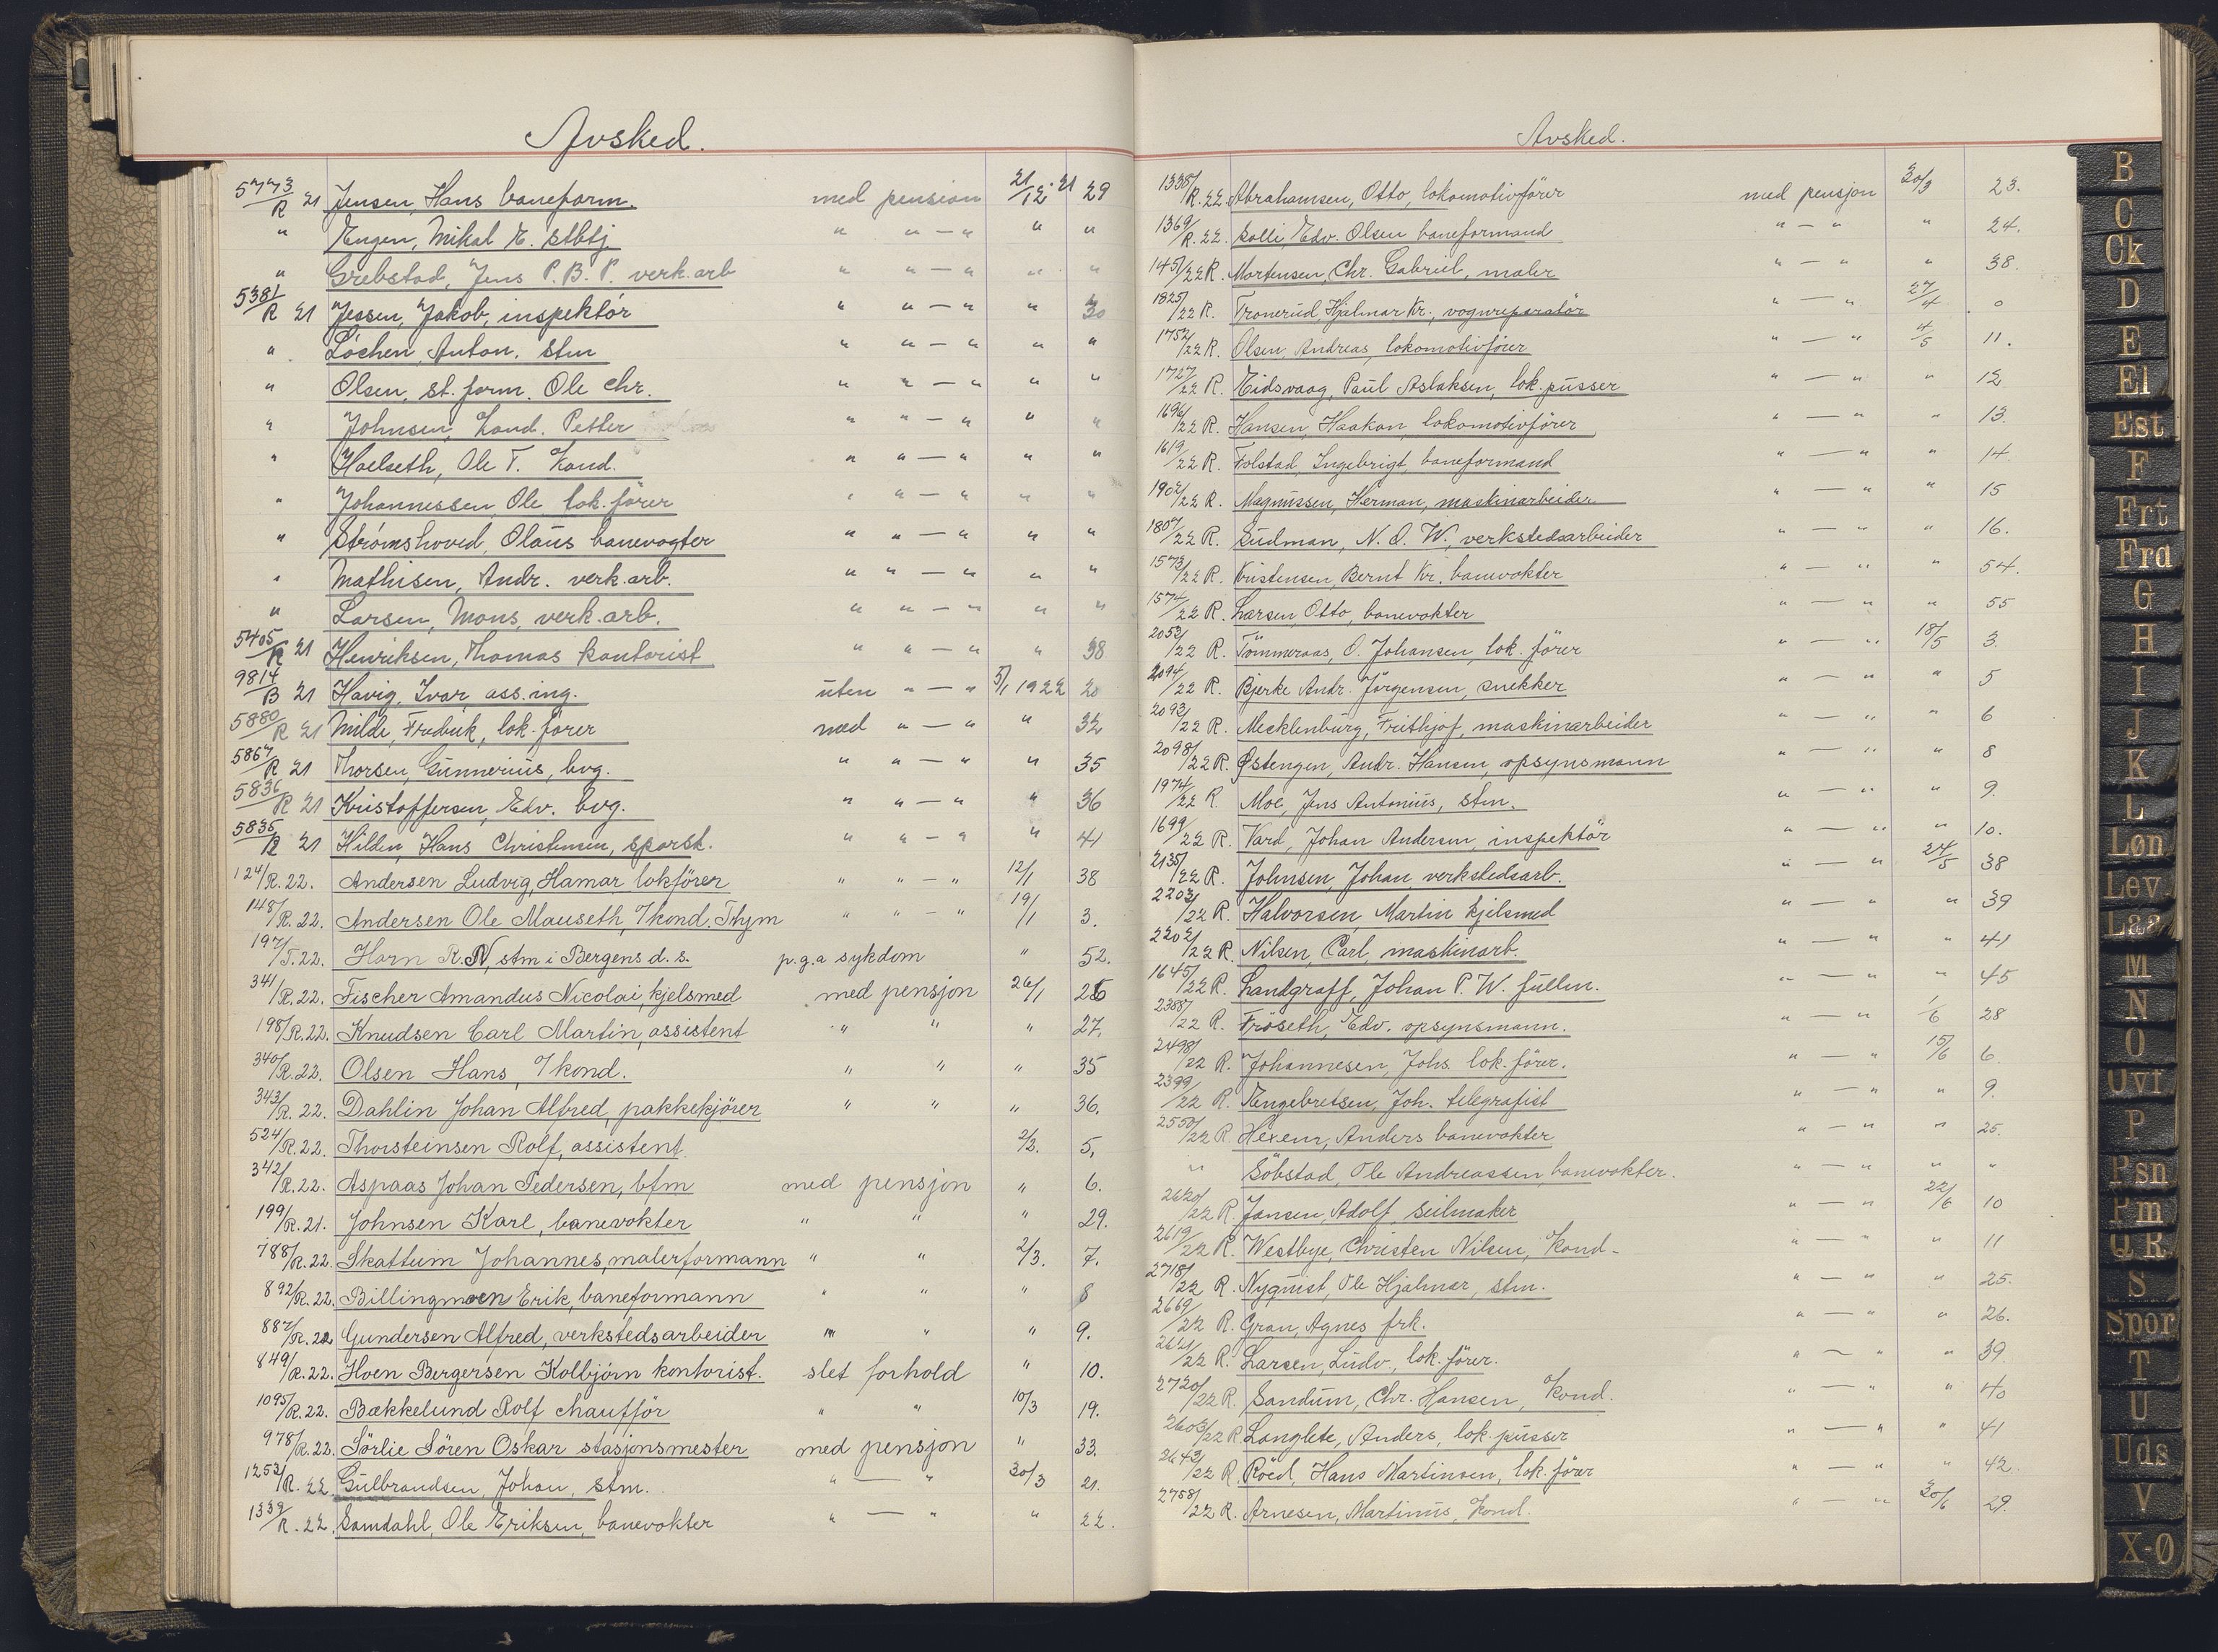 Avsked.
5773/R 21 Jensen, Hans baneform. med pension 21/12 21 29
" Engen, Mikal E. stbtj " " — " " "
" Grebstad, Jens P. B. P. verk. arb " " — " " "
5381/R 21 Jessen, Jakob, inspektör " " — " " 30
" Lochen, Anton. stm " " — " " "
" Olsen, st. form. Ole Chr. " " — " " "
" Johnsen, kond. Petter " " — " " "
" Hoelseth, Ole T. kond. " " — " " "
" Johannessen, Ole lok. förer " " — " " "
" Strömshoved, Olaus banevogter " " — " " "
" Mathisen, Andr. verk. arb. " " — " " "
" Larsen, Mons, verk. arb. " " — " " "
5405/R 21 Henriksen, Thomas kontorist " " — " " 38
9814/B 21 Havig, Ivar, ass. ing. uten " — " 5/1 1922 20
5880/R 21 Milde, Fredrik, lok. förer med " — " " 32
5867/R 21 Thorsen, Gunnerius, bvg. " " — " " 35
5836/R 21 Kristoffersen, Edv. bvg. " " — " " 36
5835/R 21 Hilden, Hans Christensen, sporsk. " " — " " 41
124/R. 22. Andersen Ludvig, Hamar lokförer " " — " 12/1 38
148/R. 22. Andersen Ole Mauseth, 7 kond. Thjm " " — " 19/1 3.
197/T. 22. Horn R. N, stm i Bergens d. s. p. g. a sykdom " 52.
341/R. 22. Fischer Amandus Nicolai, kjelsmed med pensjon 26/1 26
198/R. 22. Knudsen Carl Martin, assistent " " " 27.
340/R. 22. Olsen Hans, 7 kond. " " " 35
343/R. 22. Dahlin Johan Alfred, pakkekjörer " " " 36.
524/R. 22. Thorsteinsen Rolf, assistent 2/2. 5.
342/R. 22. Aspaas Johan Pedersen, bfm med pensjon " 6.
199/R. 21. Johnsen Karl, banevokter " " " 29.
788/R. 22. Skattum Johannes, malerformann " " 2/3. 7.
892/R. 22. Billingmoen Erik, baneformann " " " 8
887/R. 22 Gundersen Alfred, verkstedsarbeider " " " 9.
849/R. 22. Hoen Bergersen Kolbjörn kontorist. slet forhold " 10.
1095/R. 22. Bækkelund Rolf chaufför " " 10/3 19.
978/R. 22. Sörlie Sören Oskar stasjonsmester med pensjon " 33.
1253/R. 22 Gulbrandsen, Johan, stm. " — " 30/3 21.
1339/R. 22. Samdahl, Ole Eriksen, banevokter " — " " 22.
Avsked.
1338/R. 22. Abrahamsen, Otto, lokomotivförer med pensjon 30/3 23.
1369/R. 22. Solli, Edv. Olsen baneformand " — " " 24.
1451/22 R. Mortensen, Chr. Gabriel, maler " — " " 38.
1825/22 R. Tronerud, Hjalmar Kr., vognreparatör " — " 27/4 0
1752/22 R. Olsen, Andreas, lokomotivförer " — " 4/5 11.
1727/22 R. Eidsvaag, Paul Aslaksen, lok. pusser " — " " 12
1696/22 R. Hansen, Haakon, lokomotivförer " — " " 13.
1619/22 R. Folstad, Ingebrigt, baneformand " — " " 14.
1902/22 R. Magnussen, Herman, maskinarbeider " — " " 15
1807/22 R. Sudman, N. O. W., verkstedsarbeider " — " " 16.
1573/22 R. Kristensen, Bernt Kr. banevokter " — " " 54.
1574/22 R. Larsen, Otto, banevokter " — " " 55
2053/22 R. Tömmeraas, O. Johansen, lok. förer " — " 18/5 3.
2094/22 R. Bjerke Andr. Jörgensen, snekker " — " " 5
2093/22 R. Mecklenburg, Frithjof, maskinarbeider " — " " 6
2098/22 R. Østengen, Andr. Hansen, opsynsmann " — " " 8
1974/22 R. Moe, Jens Antonius, stm. " — " " 9.
1699/22 R. Vard, Johan Andersen, inspektör " — " " 10.
2135/22 R. Johnsen, Johan, verkstedsarb. " — " 24/5 38
2203/22 R. Halvorsen, Martin kjelsmed " — " " 39
2202/22 R. Nilsen, Carl, maskinarb. " — " " 41
1645/22 R. Landgraff, Johan P. W. fullm. " — " " 45
2388/22 R. Fröseth, Edv. opsynsmann. " — " 1/6 28
2498/22 R. Johannesen, Johs. lok. förer. " — " 15/6 6.
2399/22 R. Engebretsen, Joh. telegrafist " — " " 9.
2550/22 R. Hexem, Anders banevokter " — " " 25.
" Söbstad, Ole Andreassen, banevokter. " — " " "
2620/22 R. Jansen, Adolf, seilmaker " — " 22/6 10
2619/22 R. Westbye, Christen Nilsen, kond. " — " " 11
2718/22 R. Nyquist, Ole Hjalmar, stm. " — " " 25.
2669/22 R. Gran, Agnes frk. " — " " 26.
2641/22 R. Larsen, Ludv., lok. förer. " — " " 39.
2720/22 R. Sandum, Chr. Hansen, kond. " — " " 40
2603/22 R Langlete, Anders, lok. pusser " — " " 41
2643/22 R. Röed, Hans Martinsen, lok. förer " — " " 42.
2758/22 R. Arnesen, Martinus, kond. " — " 30/6 29.
B
C
Ck
D
E
El
Est
F
Frt
Fra
G
H
I
J
K
L
Løn
Lev.
Laa
M
N
O
Ovt
P
Psn
Pm
Q R
S
Spor
T
U
Uds
V
X-Ø